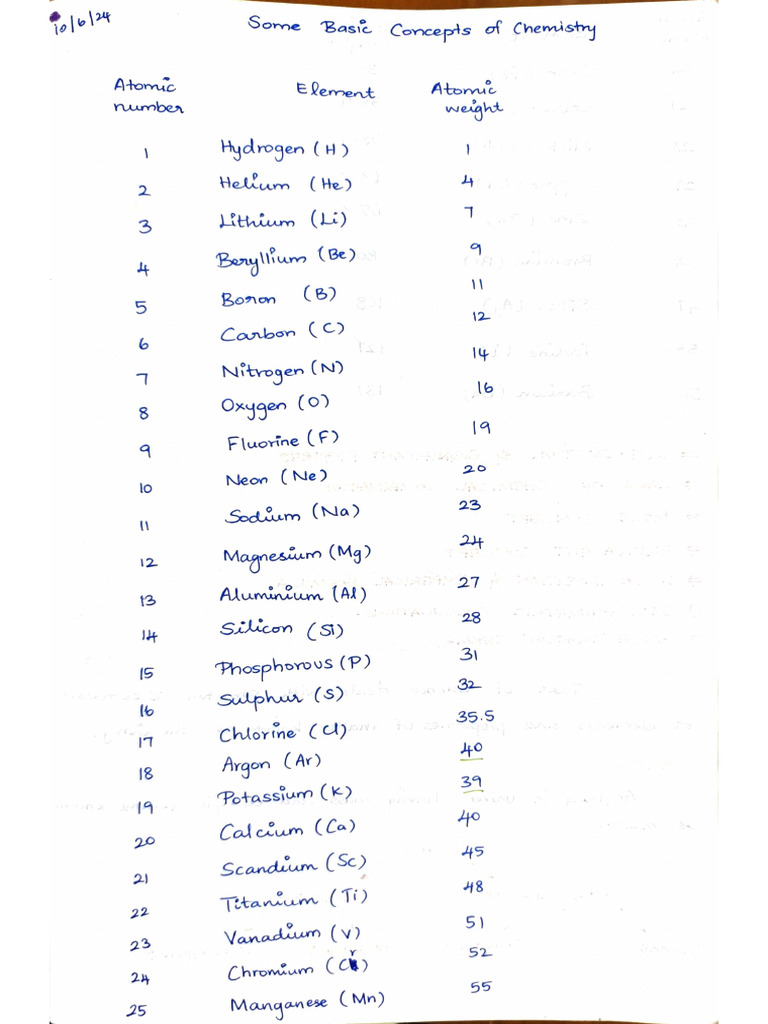 10/6/24
Some Basic Concepts of Chemistry
Atomic number Element Atomic weight
1 Hydrogen (H) 1
2 Helium (He) 4
3 Lithium (Li) 7
4 Beryllium (Be) 9
5 Boron (B) 11
6 Carbon (C) 12
7 Nitrogen (N) 14
8 Oxygen (O) 16
9 Fluorine (F) 19
10 Neon (Ne) 20
11 Sodium (Na) 23
12 Magnesium (Mg) 24
13 Aluminium (Al) 27
14 Silicon (Si) 28
15 Phosphorous (P) 31
16 Sulphur (S) 32
17 Chlorine (Cl) 35.5
18 Argon (Ar) 40
19 Potassium (K) 39
20 Calcium (Ca) 40
21 Scandium (Sc) 45
22 Titanium (Ti) 48
23 Vanadium (V) 51
24 Chromium (Cr) 52
25 Manganese (Mn) 55